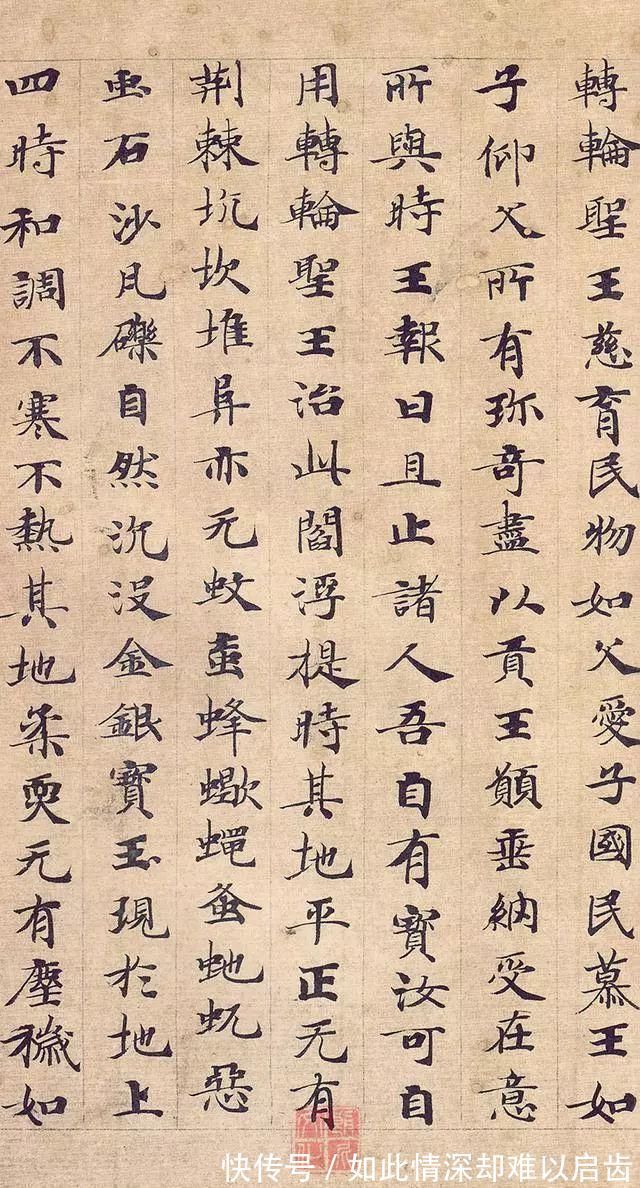 轉輪聖王慈育民物如父愛子國民慕王如
子仰父所有珎奇盡以貢王願垂納受在意
所與時王報曰且止諸人吾自有寶汝可自
用轉輪聖王治此閻浮提時其地平正无有
荆棘坑坎堆阜亦无蚊䖟蜂蠍蠅蚤虵蚖惡
虫石沙瓦礫自然沉没金銀寶玉現於地上
四時和調不寒不熱其地柔耎无有塵穢如
快传号 / 如此情深却难以启齿